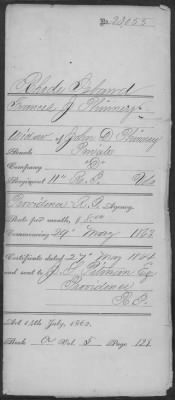 No. 23055
Rhode Island
Frances J Phinney
Widow of John D Phinney
Rank Private
Company "D"
Regiment 11" R.I. Vols
Providence R.I. Agency.
Rate per month, $8.00
Commencing 29" May 1863
Certificate dated 27" May 1864
and sent to J. S. Pitman Esq
Providence
R.I.
Act 14th July, 1862.
Book Vol. 5 Page 121